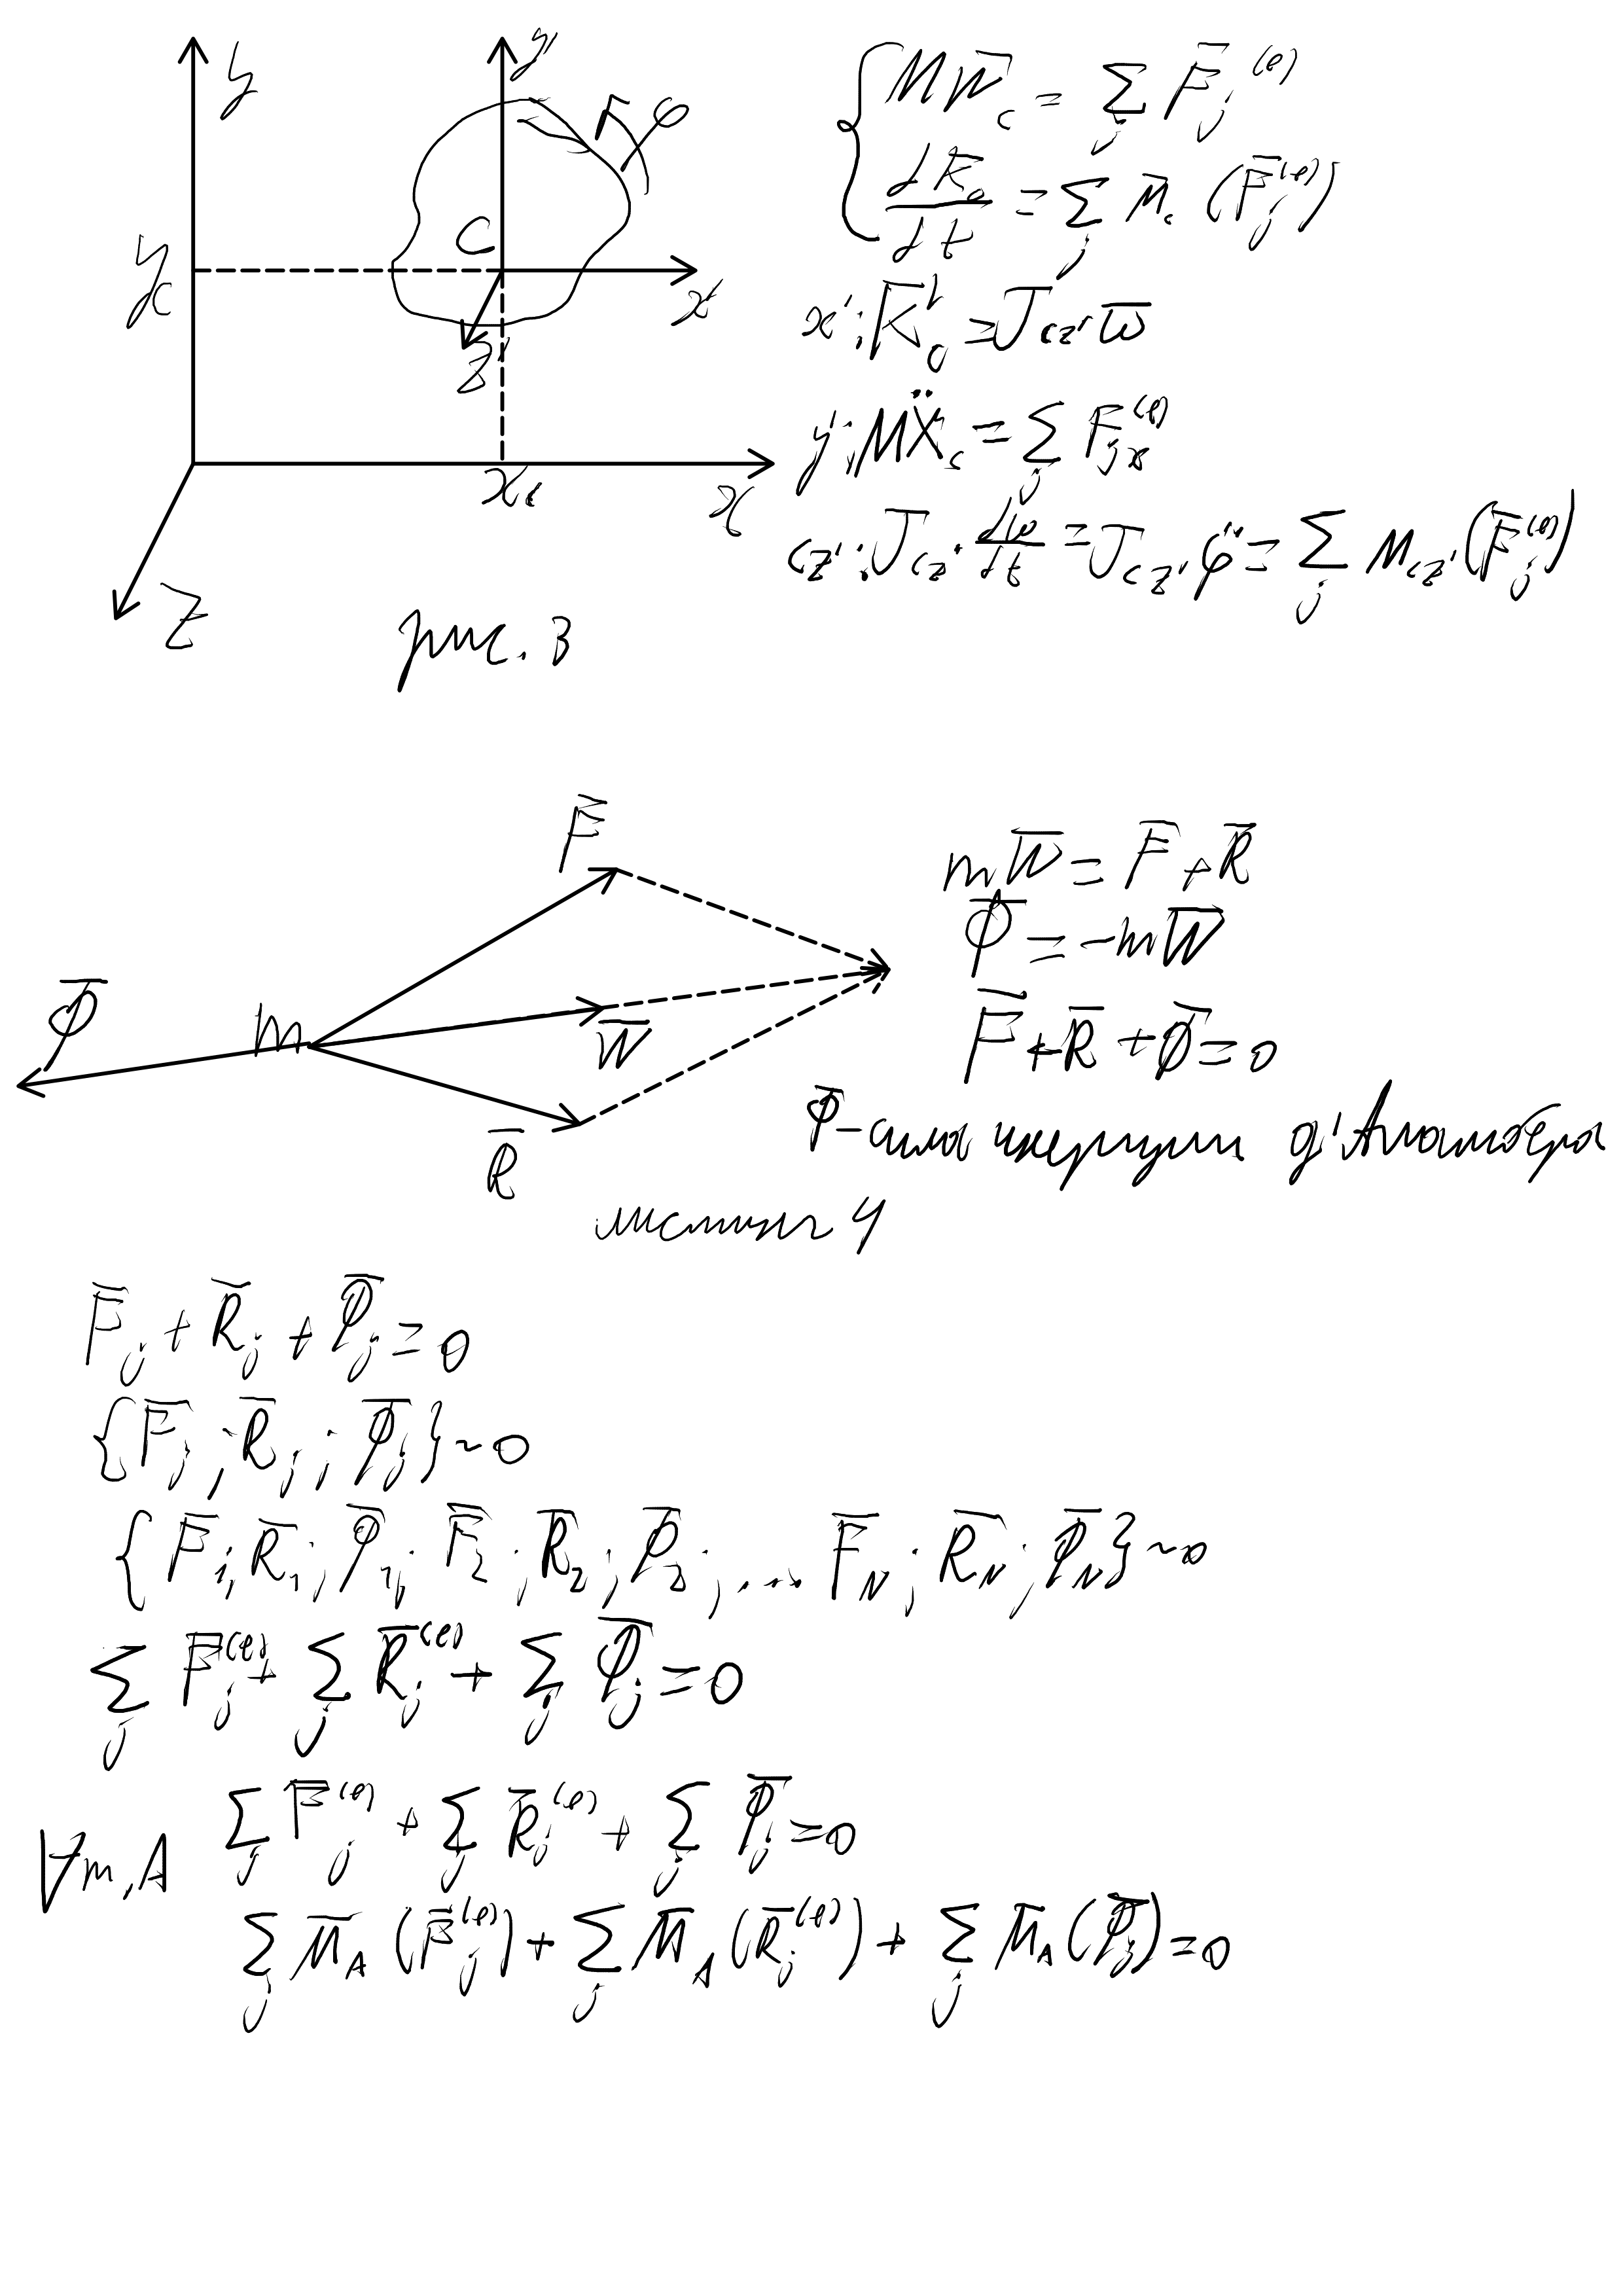 y
y'
φ
C
y_c
x'
z'
x_c
x
z
рис. 3
{ M W̄_c = Σ_j F̄_j^(e)
dK̄_c/dt = Σ_j M̄_c (F̄_j^(e))
x': K̄'_c = J_cz' ω̄
y': MẌ_c = Σ_j F_jx^(e)
cz': J_cz' dω/dt = J_cz' φ̈ = Σ_j M_cz' (F̄_j^(e))
F̄
Φ̄
m
W̄
R̄
mW̄ = F̄ + R̄
Φ̄ = -mW̄
F̄ + R̄ + Φ̄ = 0
Φ̄ - сила инерции д'Аламбера
листинг 4
F̄_j + R̄_j + Φ̄_j = 0
{F̄_j ; R̄_j ; Φ̄_j} ~ 0
{F̄_1; R̄_1; Φ̄_1; F̄_2; R̄_2; Φ̄_2; ... F̄_N; R̄_N; Φ̄_N} ~ 0
Σ_j F̄_j^(e) + Σ_j R̄_j^(e) + Σ_j Φ̄_j = 0
Σ_j F̄_j^(e) + Σ_j R̄_j^(e) + Σ_j Φ̄_j = 0
∀ т, A
Σ_j M̄_A (F̄_j^(e)) + Σ_j M̄_A (R̄_j^(e)) + Σ_j M̄_A (Φ̄_j) = 0